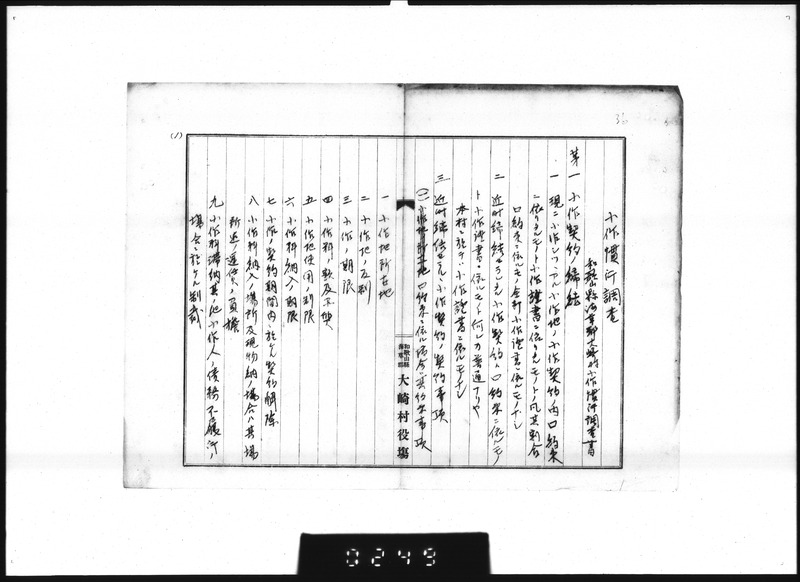 小作慣行調査
和歌山縣海草郡大崎村小作慣行調査書
第一 小作契約ノ締結
一 現ニ小作シツヽアル小作地ノ小作契約ノ内口約束
ニ依リタルモノト小作證書ニ依リタルモノトノ凡其割合
口約束ニ依ルモノ全部小作證書ニ依ルモノナシ
二 近時締結セラルヽ小作契約ハ口約束ニ依ルモノ
ト小作證書ニ依ルモノト何レカ普通ナリヤ
本村ニ於テハ小作證書ニ依ルモノナシ
三 近時締結セラルヽ小作契約ノ契約事項
(一) 口約束ニ依ル場合ニ其約束事項
和歌山縣海草郡 大崎村役場
一 小作地所在地
二 小作地ノ反別
三 小作ノ期限
四 小作料ノ額及品質
五 小作地使用制限
六 小作料納入ノ期限
七 小作ノ契約期間内ニ於ケル契約解除
八 小作料納入ノ場所及現物納ノ場合ハ其場
所迄ノ運賃ノ負擔
九 小作料滯納其ノ他小作人ノ債務不履行ノ
場合ニ於ケル制裁
(1)
36
0249